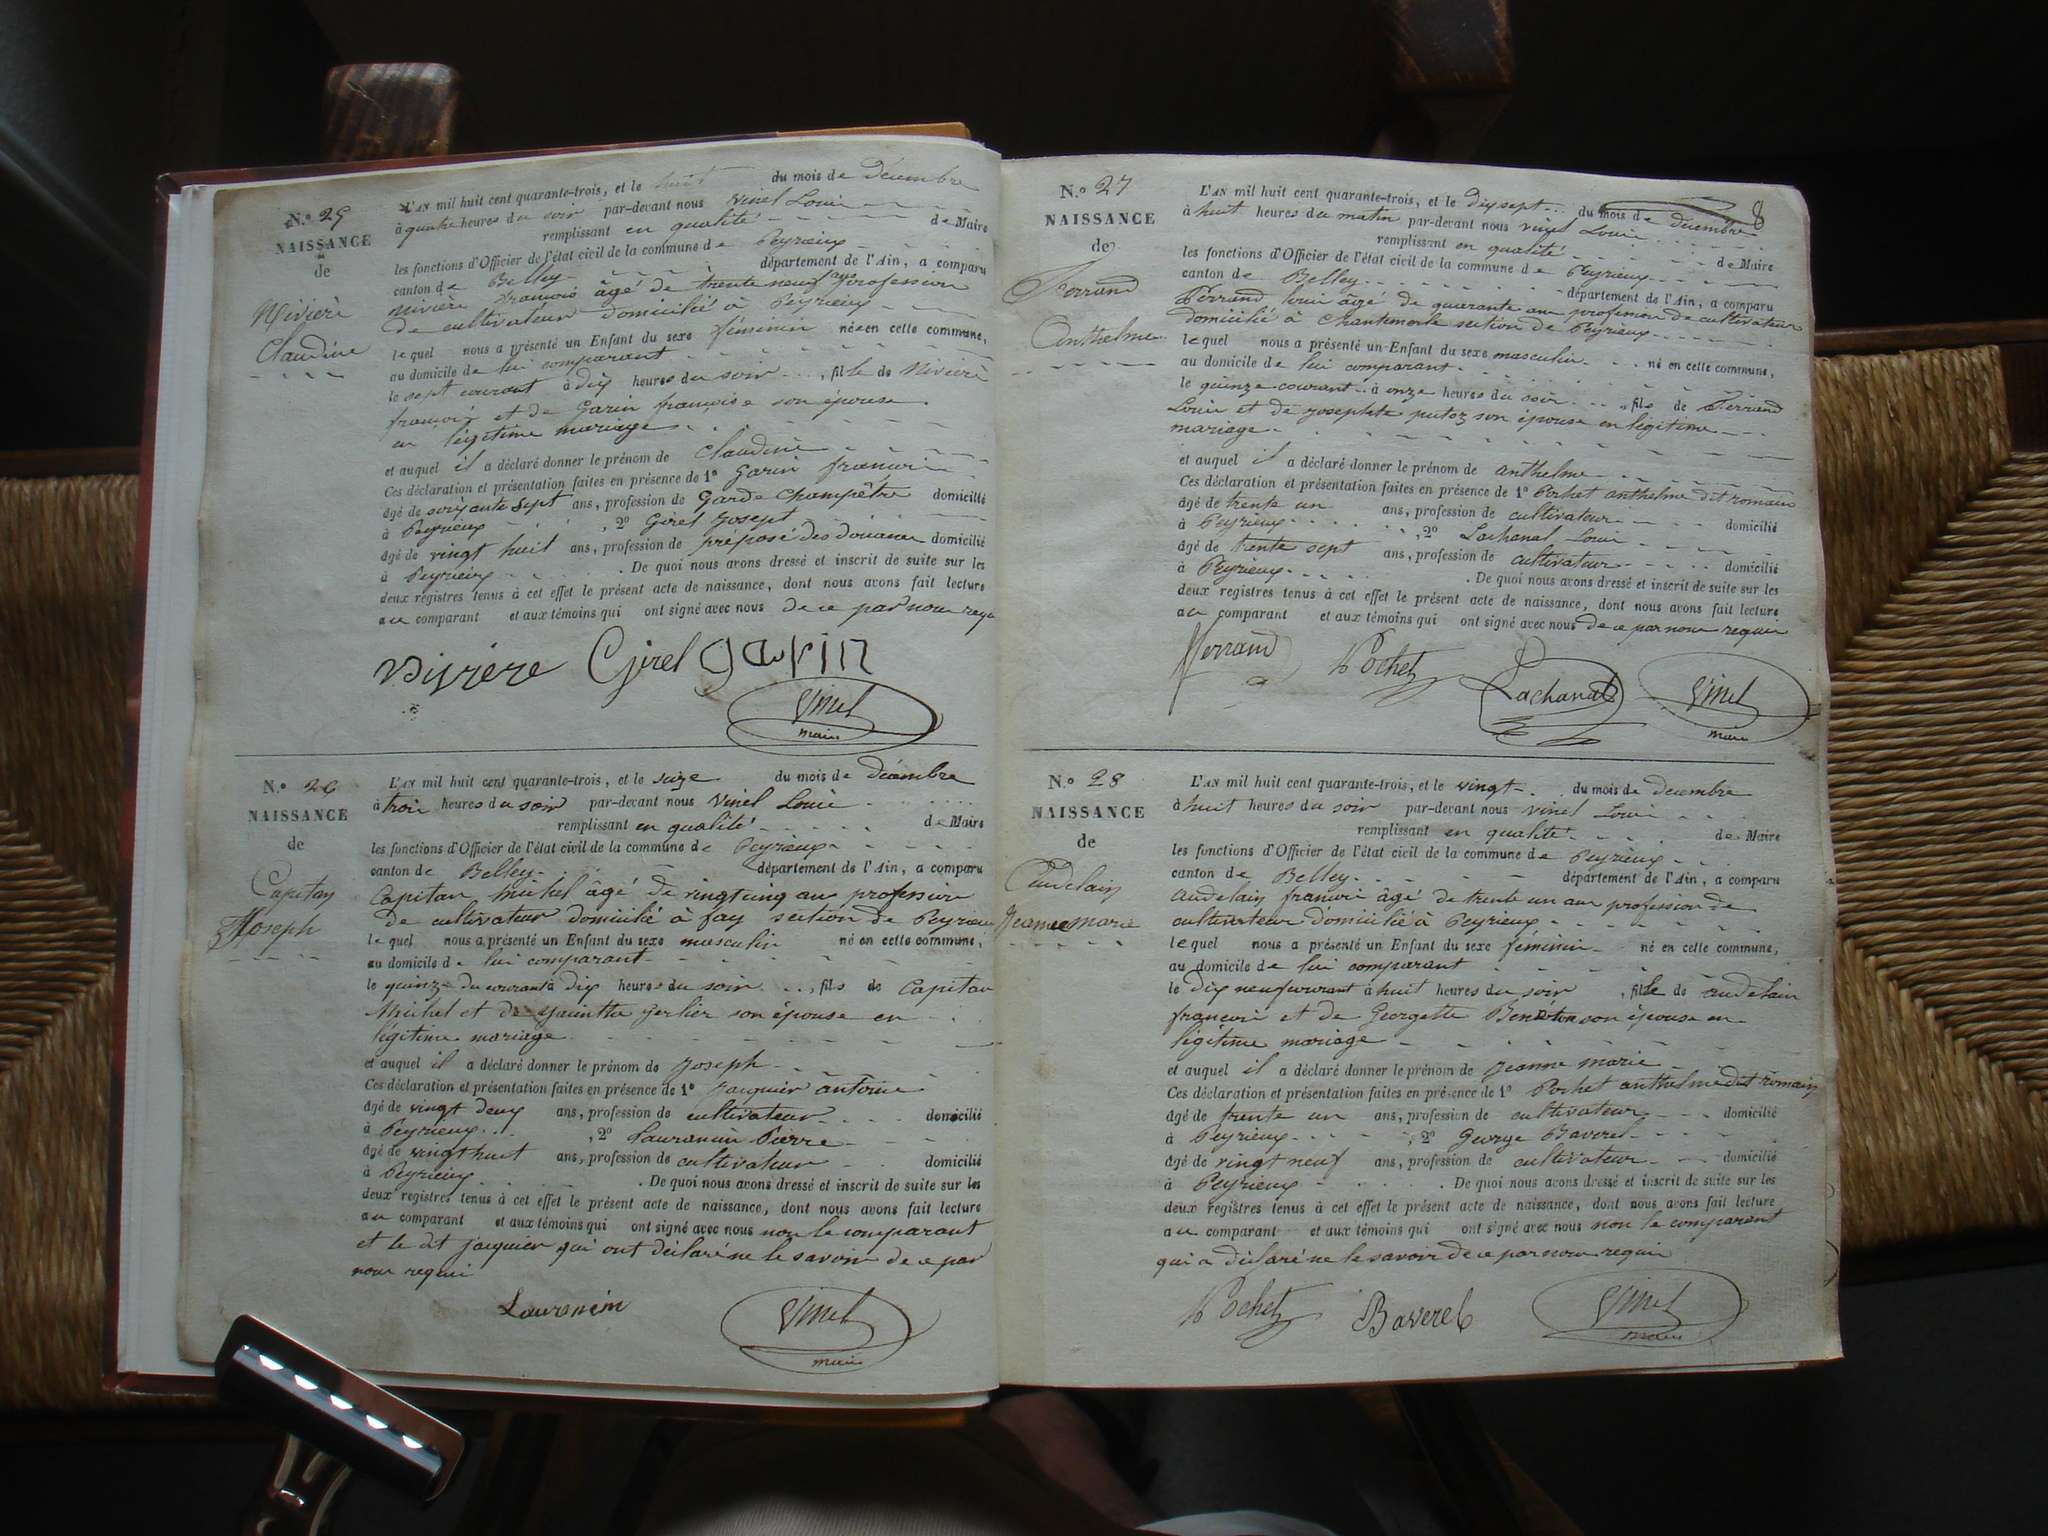 N.º 25
NAISSANCE
de
Nivière
Claudine
L'AN mil huit cent quarante-trois, et le huit du mois de Décembre
à quatre heures du soir par-devant nous Vinel Louis
remplissant en qualité de Maire
les fonctions d'Officier de l'état civil de la commune de Peyrieux
canton de Belley département de l'Ain, a comparu
nivière françois âgé de trente neuf ans profession
de cultivateur domicilié à Peyrieux
lequel nous a présenté un Enfant du sexe féminin née en cette commune,
au domicile de lui comparant
le sept courant à dix heures du soir, fille de Nivière
françois et de Garin françoise son épouse
en légitime mariage
et auquel il a déclaré donner le prénom de Claudine
Ces déclaration et présentation faites en présence de 1º Garin françois
âgé de soixante sept ans, profession de Garde Champêtre domicilié
à Peyrieux, 2º Girel Joseph
âgé de vingt huit ans, profession de préposé des douanes domicilié
à Peyrieux. De quoi nous avons dressé et inscrit de suite sur les
deux registres tenus à cet effet le présent acte de naissance, dont nous avons fait lecture
au comparant et aux témoins qui ont signé avec nous de ce par nous requis
Girel garin
Vinel
maire
N.º 26
NAISSANCE
de
Capitan
Joseph
L'AN mil huit cent quarante-trois, et le seize du mois de décembre
à trois heures du soir par-devant nous Vinel Louis
remplissant en qualité de Maire
les fonctions d'Officier de l'état civil de la commune de Peyrieux
canton de Belley département de l'Ain, a comparu
Capitan michel âgé de vingt cinq ans profession
de cultivateur domicilié à fay section de Peyrieu
lequel nous a présenté un Enfant du sexe masculin né en cette commune,
au domicile de lui comparant
le quinze du courant à dix heures du soir, fils de Capitan
Michel et de gerlier son épouse en
légitime mariage
et auquel il a déclaré donner le prénom de Joseph
Ces déclaration et présentation faites en présence de 1º Jacquier antoine
âgé de vingt deux ans, profession de cultivateur domicilié
à Peyrieux, 2º Lauronein Pierre
âgé de vingt huit ans, profession de cultivateur domicilié
à Peyrieux. De quoi nous avons dressé et inscrit de suite sur les
deux registres tenus à cet effet le présent acte de naissance, dont nous avons fait lecture
au comparant et aux témoins qui ont signé avec nous non le comparant
et le dit Jacquier qui ont déclaré ne le savoir de ce par
nous requis
Vinel
maire
8
N.º 27
NAISSANCE
de
Ferrand
Anthelme
L'AN mil huit cent quarante-trois, et le dix sept du mois de décembre
à huit heures du matin par-devant nous Vinel Louis
remplissant en qualité de Maire
les fonctions d'Officier de l'état civil de la commune de Peyrieux
canton de Belley département de l'Ain, a comparu
Ferrand louis âgé de quarante ans profession de cultivateur
domicilié à Chantemerle section de Peyrieux
lequel nous a présenté un Enfant du sexe masculin né en cette commune,
au domicile de lui comparant
le quinze courant à onze heures du soir, fils de Ferrand
Louis et de Josephte putoz son épouse en légitime
mariage
et auquel il a déclaré donner le prénom de anthelme
Ces déclaration et présentation faites en présence de 1º Pochet anthelme dit romain
âgé de trente un ans, profession de cultivateur domicilié
à Peyrieux, 2º Lachanal Louis
âgé de trente sept ans, profession de cultivateur domicilié
à Peyrieux. De quoi nous avons dressé et inscrit de suite sur les
deux registres tenus à cet effet le présent acte de naissance, dont nous avons fait lecture
au comparant et aux témoins qui ont signé avec nous de ce par nous requis
ferrand Pochet Lachanal Vinel
maire
N.º 28
NAISSANCE
de
Audelain
Jeanne marie
L'AN mil huit cent quarante-trois, et le vingt du mois de décembre
à huit heures du soir par-devant nous Vinel Louis
remplissant en qualité de Maire
les fonctions d'Officier de l'état civil de la commune de Peyrieux
canton de Belley département de l'Ain, a comparu
audelain françois âgé de trente un ans profession de
cultivateur domicilié à Peyrieux
lequel nous a présenté un Enfant du sexe féminin né en cette commune,
au domicile de lui comparant
le dix neuf courant à huit heures du soir, fille de audelain
françois et de Georgette son épouse en
légitime mariage
et auquel il a déclaré donner le prénom de Jeanne marie
Ces déclaration et présentation faites en présence de 1º Pochet anthelme dit romain
âgé de trente un ans, profession de cultivateur domicilié
à Peyrieux, 2º George Baverel
âgé de vingt neuf ans, profession de cultivateur domicilié
à Peyrieux. De quoi nous avons dressé et inscrit de suite sur les
deux registres tenus à cet effet le présent acte de naissance, dont nous avons fait lecture
au comparant et aux témoins qui ont signé avec nous non le comparant
qui a déclaré ne le savoir de ce par nous requis
Pochet Baverel Vinel
maire